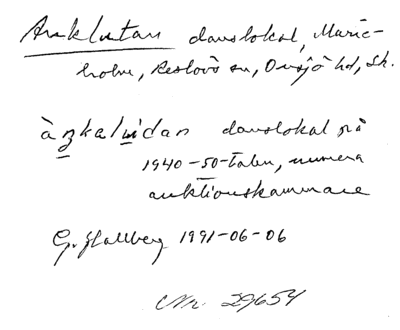 Anklutan danslokal, Marie-
holm, Reslövs sn, Onsjö hd, Sk.
àŋkalʉ́dan danslokal på
1940-50-talen, numera
auktionskammare
G. Hallberg 1991-06-06
Nr. 29654